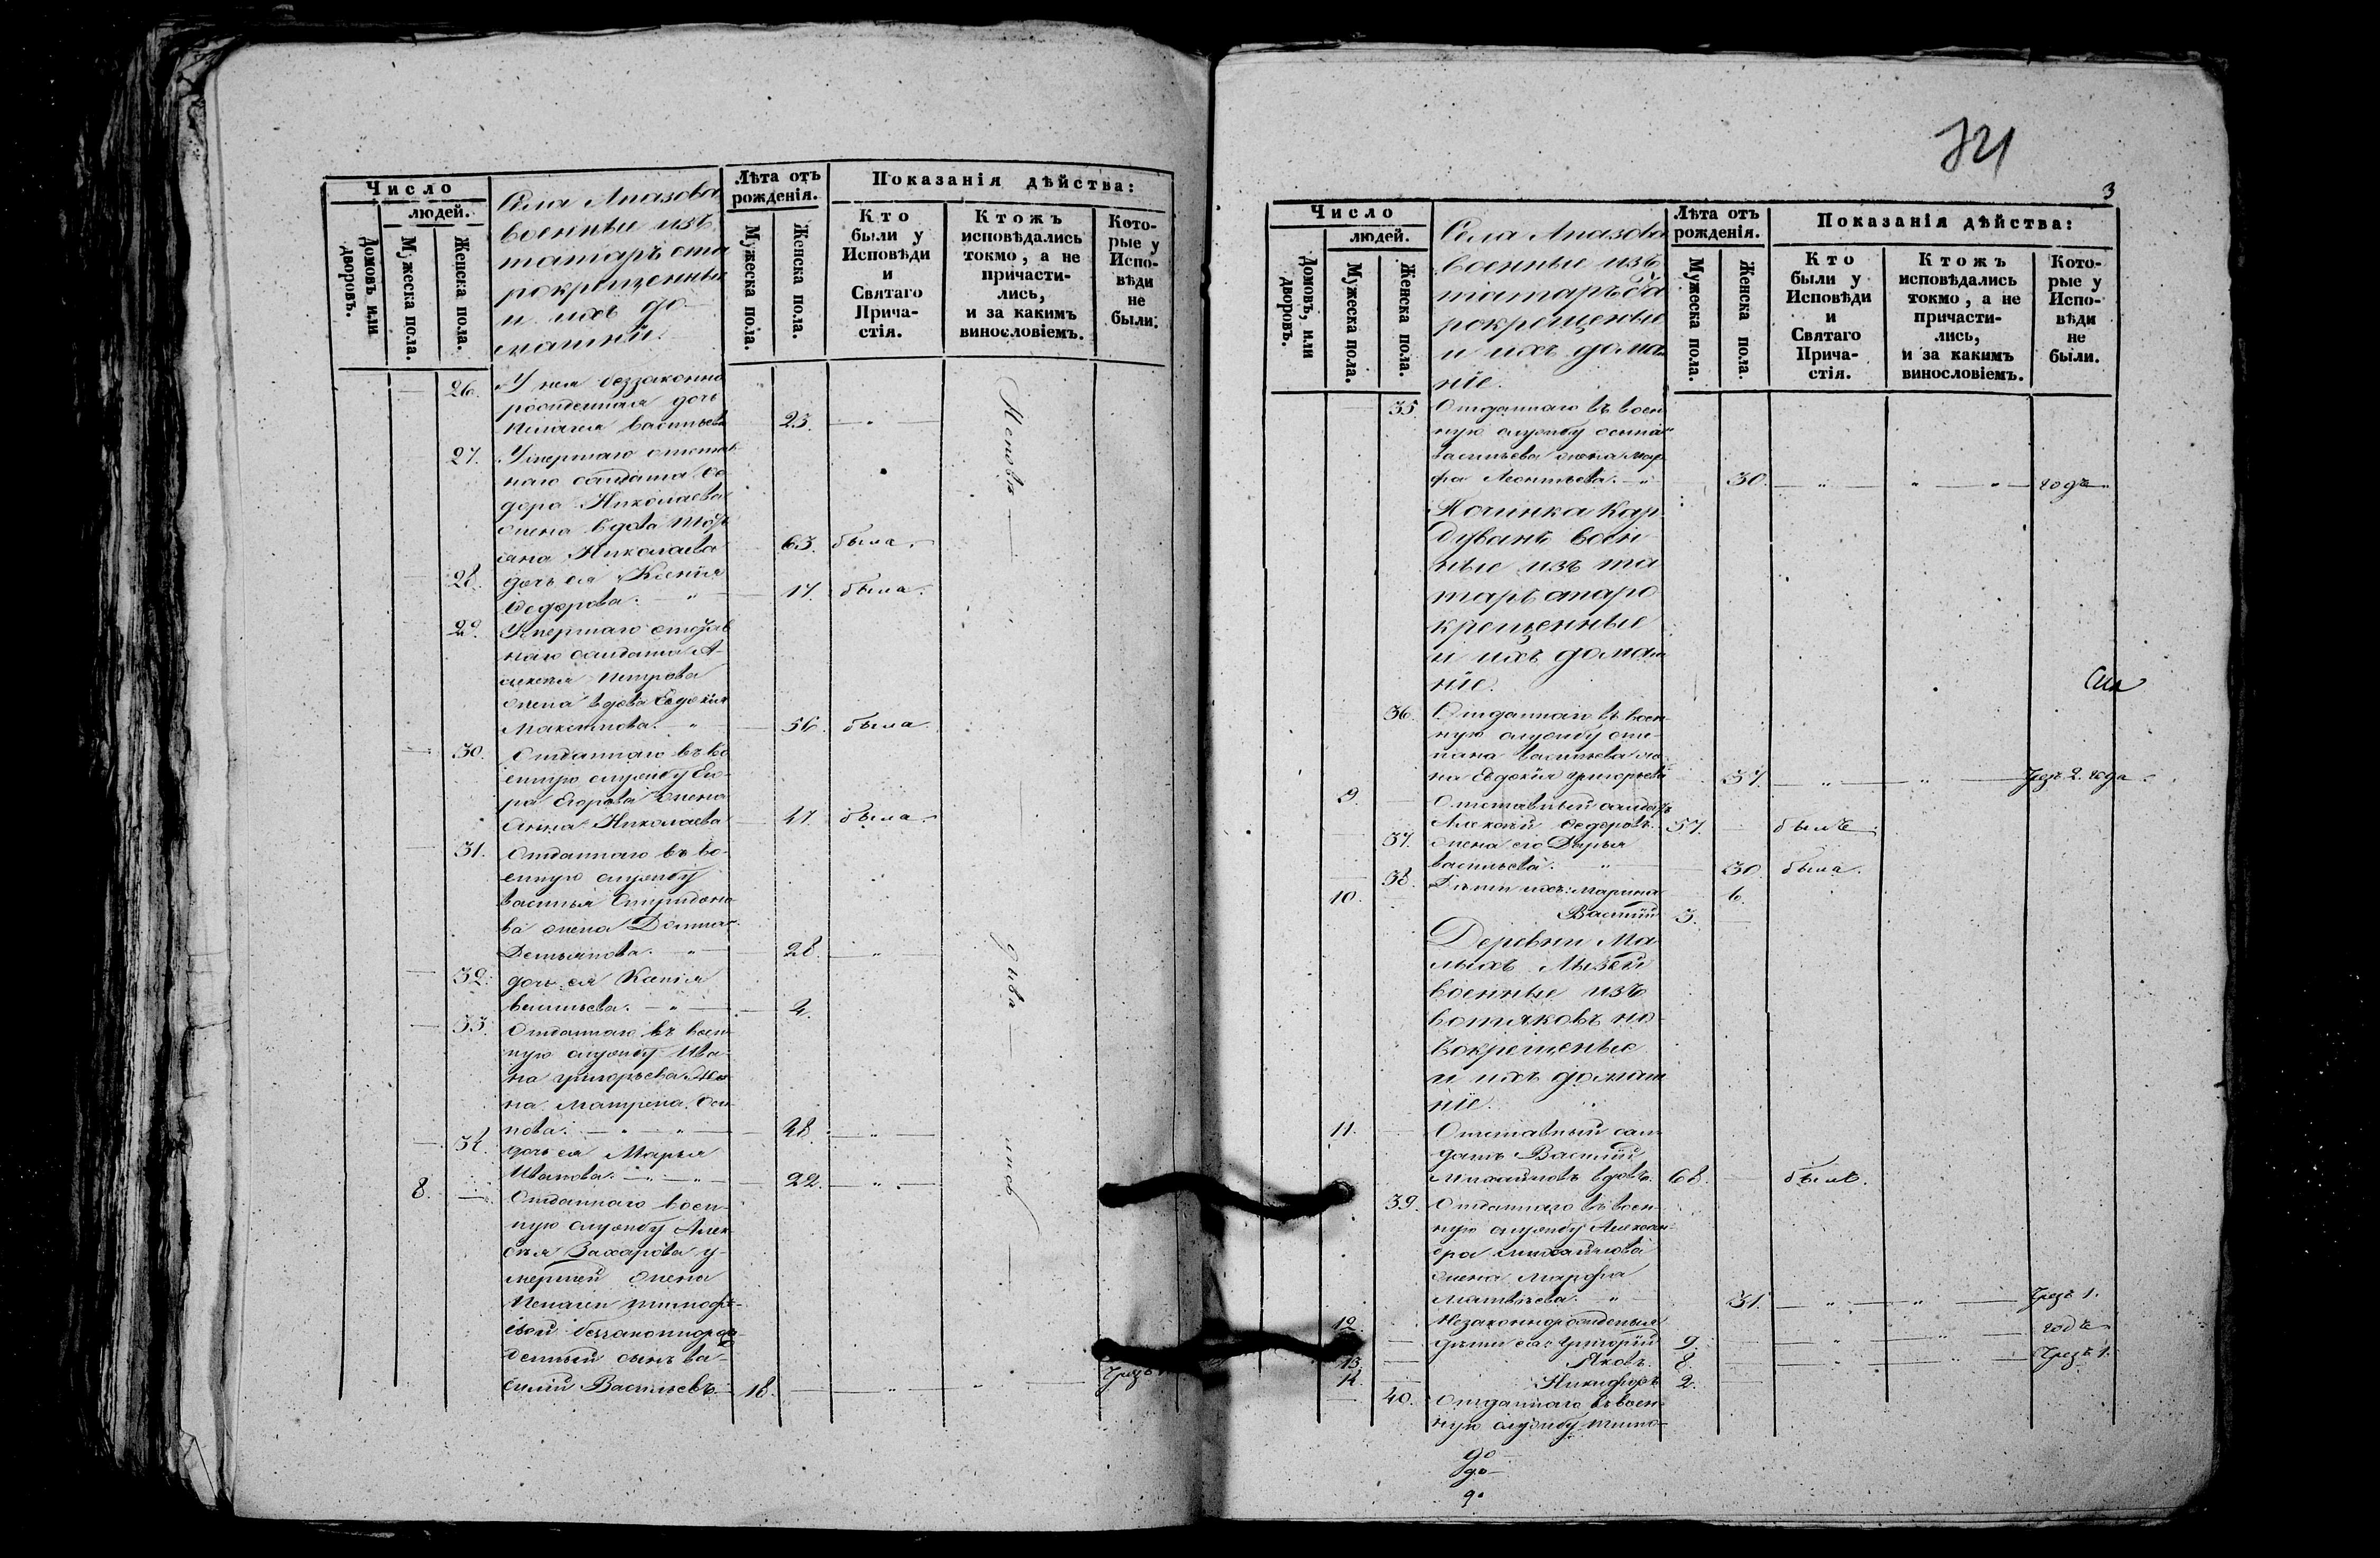 Число
людей.
Домовъ или дворовъ.
Мужеска пола.
Женска пола.
Села Апазова
военные изъ
татаръ ста
рокрещенные
и ихъ до-
машніи.
Лѣта отъ рожденія.
Мужеска пола.
Женска пола.
Показанія дѣйства:
Кто были у Исповѣди и Святаго Прича-стія.
Ктожъ исповѣдались токмо, а не причасти-лись, и за какимъ винословіемъ.
Кото-рые у Испо-вѣди не были.
26. У нея беззаконно
рожденная дочь
Пелагея Васильева 23. — " —
27. Умершаго отстав
наго солдата Ѳе
дора Николаева
жена вдова Тать
яна Николаева 63. была.
28. дочь ея Ксенія
Ѳедорова. — " — 17. была.
29. Умершаго отстав
наго солдата А-
лексѣя Петрова
жена вдова Евдокія
Максимова. " — 56. была.
30. Отданнаго въ во
енную службу Его-
ра Егорова жена
Анна Николаева — 47. была.
31. Отданнаго въ во-
енную службу
Василья Спиридоно
ва жена Домна
Демьянова. — " — 28. — " —
32. дочь ея Ксенія
Васильева. — " — 4.
33. Отданнаго въ воен
ную службу Ива-
на Григорьева Же
на Матрена Оси
пова. — " — " — 48. — " —
34. дочь ея Марья
Иванова. — " — " — 22. — " —
8. — Отданнаго воен-
ную службу Алек-
сѣя Захарова у-
мершей жены
Пелагеи Тимофѣ-
евой беззаконнорож
денный сынъ Ва-
силій Васильевъ. — 18. — " — " — Чрезъ
74
3
Число
людей.
Домовъ, или дворовъ.
Мужеска пола.
Женска пола.
Села Апазова
военные изъ
татаръ ста
рокрещеные
и ихъ домаш
ніе.
Лѣта отъ рожденія.
Мужеска пола.
Женска пола.
Показанія дѣйства:
Кто были у Исповѣди и Святаго Прича-стія.
Ктожъ исповѣдались токмо, а не причасти-лись, и за какимъ винословіемъ.
Кото-рые у Испо-вѣди не были.
35. Отданнаго въ воен
ную службу
Васильева жена Мар
фа Леонтьева. — " — 30. — " — " — " — годъ.
Починка Кар
дуванъ воен
ные изъ та
таръ старо
крещенные
и ихъ домаш
ніе.
36. Отданнаго въ воен-
ную службу Сте-
пана Васильева же
на Евдокія Григорьева 37. — " — " — Чрезъ 2. года.
9. — Отставный солдатъ
Алексѣй Ѳедоровъ. 57. — былъ
37. жена его Дарья
Васильева. " — 30. была.
38. Дѣти ихъ: Марина 6.
10. Василій 3. —
Деревни Ма
лыхъ Лызей
военные изъ
вотяковъ но-
вокрещеные
и ихъ домаш
ніе.
11. — Отставный сол-
датъ Василій
Михайловъ вдовъ. 68. — былъ.
39. Отданнаго въ воен-
ную службу Алексан-
дра Михайлова
жена Марфа
Матвѣева. — " — 31. — " — " — Чрезъ 1.
12. Незаконнорожденныя годъ
дѣти ея: Григорій 9. — " — " —
13. Яковъ. 8. — " — " — Чрезъ 1.
14. — Никифоръ 2. —
40. Отданнаго въ воен-
ную службу Тимо-